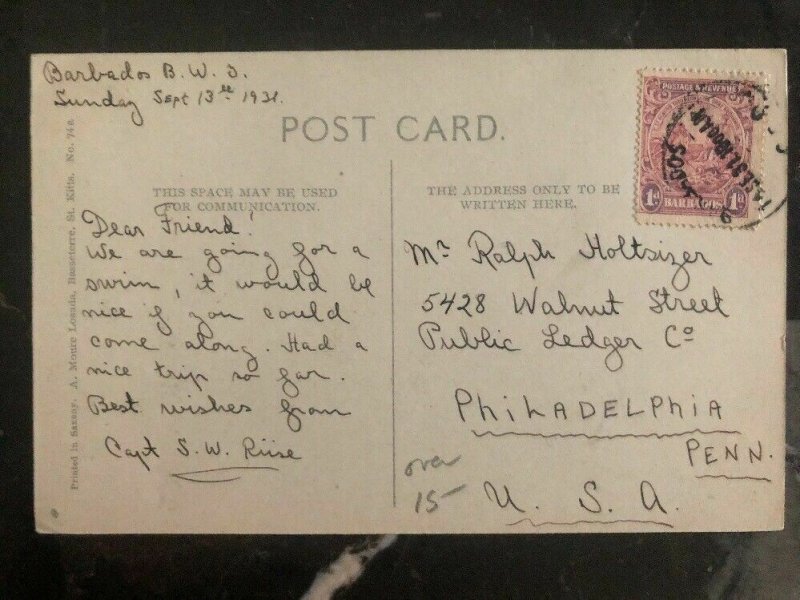 Barbados B. W. I.
Sunday Sept 13th 1931.
POST CARD.
THIS SPACE MAY BE USED
FOR COMMUNICATION.
THE ADDRESS ONLY TO BE
WRITTEN HERE.
POSTAGE & REVENUE
1d BARBADOS 1d
Dear Friend!
We are going for a
swim, it would be
nice if you could
come along. Had a
nice trip so far.
Best wishes from
Capt S. W. Riise
Mr Ralph Holtsizer
5428 Walnut Street
Public Ledger Co
PHILADELPHIA
PENN.
U. S. A.
over
15-
Printed in Saxony. A. Moure Losada, Basseterre, St. Kitts. No. 74a.